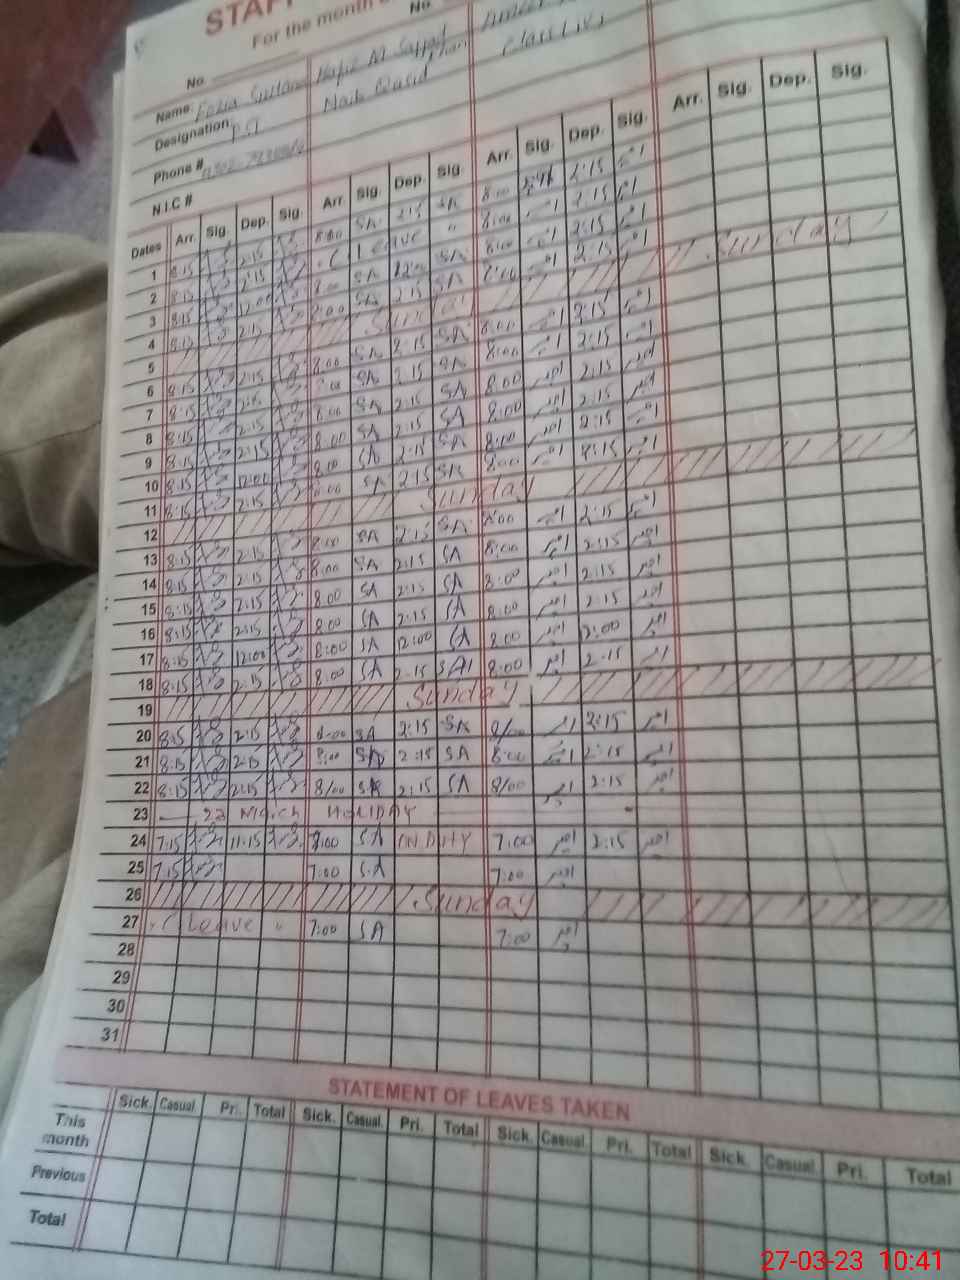 STAFF
For the month
No.
No.
Name
Designation: Naib Qasid Class IV
Phone #
N.I.C #
Dates Arr. Sig. Dep. Sig. Arr. Sig. Dep. Sig. Arr. Sig. Dep. Sig. Arr. Sig. Dep. Sig.
1 8:15 2:15 8:00 SA 2:15 SA 8:00 2:15
2 8:15 2:15 C Leave " 8:00 2:15
3 8:15 12:00 8:00 SA 12:00 SA 8:00 2:15
4 8:15 2:15 8:00 SA 2:15 SA 8:00 امیر 2:15 امیر
5 Sunday Sunday
6 8:15 2:15 8:00 SA 2:15 SA 8:00 امیر 2:15 امیر
7 8:15 2:15 8:00 SA 2:15 SA 8:00 امیر 2:15 امیر
8 8:15 2:15 8:00 SA 2:15 SA 8:00 امیر 2:15 امیر
9 8:15 2:15 8:00 SA 2:15 SA 8:00 امیر 2:15 امیر
10 8:15 12:00 8:00 SA 2:15 SA 8:00 امیر 2:15 امیر
11 8:15 2:15 8:00 SA 2:15 SA 8:00 امیر 2:15 امیر
12 Sunday
13 8:15 2:15 8:00 SA 2:15 SA 8:00 امیر 2:15 امیر
14 8:15 2:15 8:00 SA 2:15 SA 8:00 امیر 2:15 امیر
15 8:15 2:15 8:00 SA 2:15 SA 8:00 امیر 2:15 امیر
16 8:15 2:15 8:00 SA 2:15 SA 8:00 امیر 2:15 امیر
17 8:15 12:00 8:00 SA 12:00 SA 8:00 امیر 2:00 امیر
18 8:15 2:15 8:00 SA 2:15 SA 8:00 امیر 2:15 امیر
19 Sunday
20 8:15 2:15 8:00 SA 2:15 SA 8/00 امیر 2:15 امیر
21 8:15 2:15 8:00 SA 2:15 SA 8:00 امیر 2:15 امیر
22 8:15 2:15 8/00 SA 2:15 SA 8/00 امیر 2:15 امیر
23 23 March HOLIDAY
24 7:15 11:15 7:00 SA ON DUTY 7:00 امیر 2:15 امیر
25 7:15 7:00 SA 7:00 امیر
26 Sunday
27 C Leave " 7:00 SA 7:00 امیر
28
29
30
31
STATEMENT OF LEAVES TAKEN
Sick. Casual. Pri. Total Sick. Casual. Pri. Total Sick. Casual. Pri. Total Sick. Casual. Pri. Total
This month
Previous
Total
27-03-23 10:41